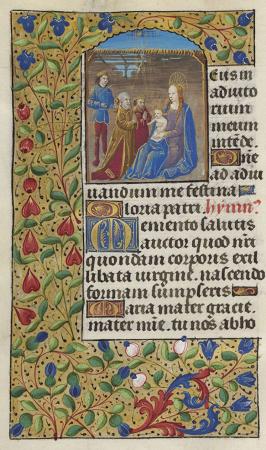 Eus in
adiuto
rium
meum
intēde.
Dn̄e
ad adiu
uandum me festina
Gloria patri hymn᷒
Memento salutis
auctor quod nr̄i
quondam corporis exil
libata uirgine nascendo
formam sumpseris
Maria mater gracie
mater mie, tu nos ab ho